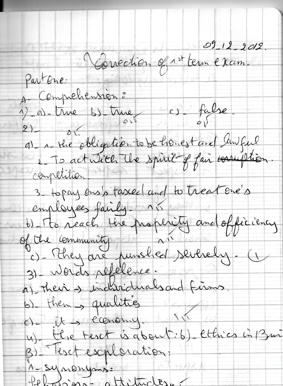 09-12-2012.
Correction of 1st term exam.
Part one
A- Comprehension:
1)- a)- true b)- true c)- false.
0,5 0,5 0,5
2)-
a)- 1- the obligation to be honest and lawful
2- To act with the spirit of fair corruption
competition.
3- to pay one's taxes and to treat one's
employees fairly. 1,5
b)- To reach the prosperity and efficiency
of the community 1,5
c)- They are punished severely. 1
3)- Words reference.
a)- Their → individuals and firms.
b)- them → qualities
c)- it → economy. 1,5
4)- the text is about: b)- Ethics in Busi
B)- Text exploration:
1- synonyms:
behaviors = attitudes